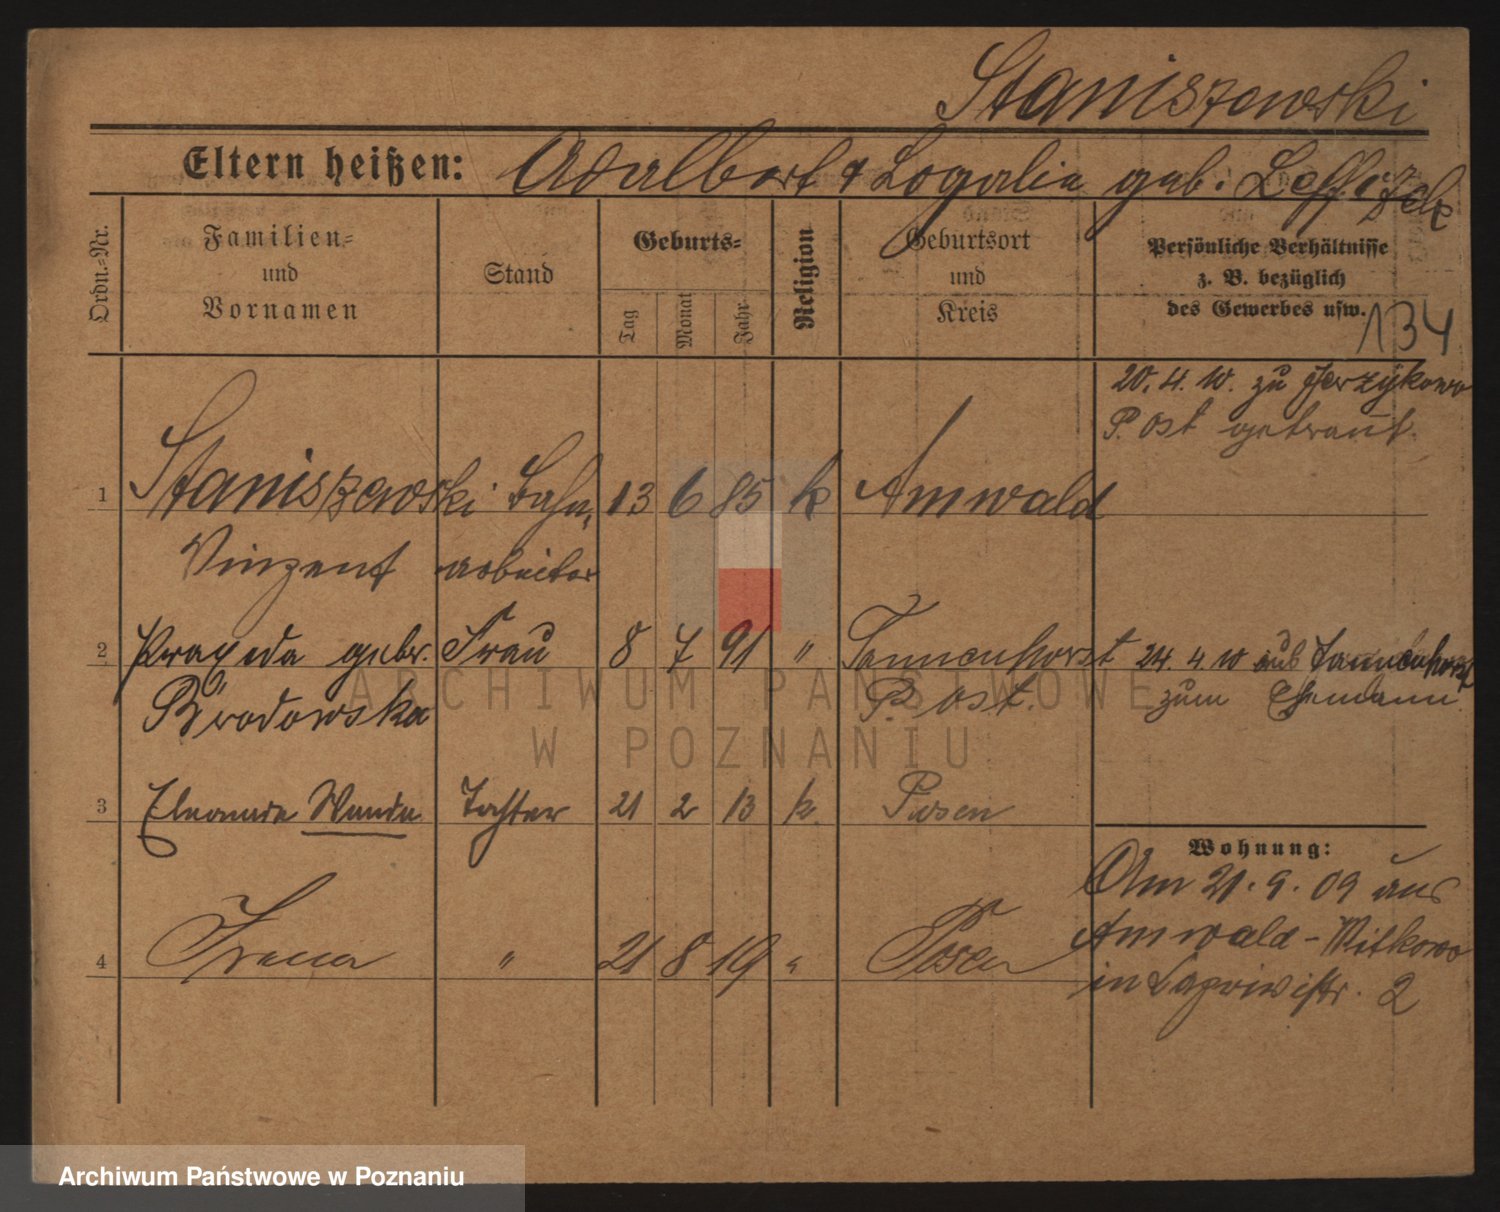 Staniszewski
Eltern heißen: Adalbert & Rogalie geb.
Ordn.-Nr.
Familien-
und
Vornamen
Stand
Geburts-
Tag
Monat
Jahr
Religion
Geburtsort
und
Kreis
Persönliche Verhältnisse
z. B. bezüglich
des Gewerbes usw.
134
20. 4. 10. zu Jerzykowo
P. Ost getraut.
1 Staniszewski Bahn- 13 6 85 k Amwald
Vinzent arbeiter
2 Praxeda gebr. Frau 8 7 91 " Tannenhorst 24 4 10 aus Tannenhorst
Brodowska P. Ost. zum Ehemann
3 Eleonore Wanda Tochter 21 2 13 k. Posen
Wohnung:
Am 21. 9. 09 aus
Amwald - Witkowo
in 2
4 Irena " 21 8 19 " Posen
ARCHIWUM PAŃSTWOWE
W POZNANIU
Archiwum Państwowe w Poznaniu